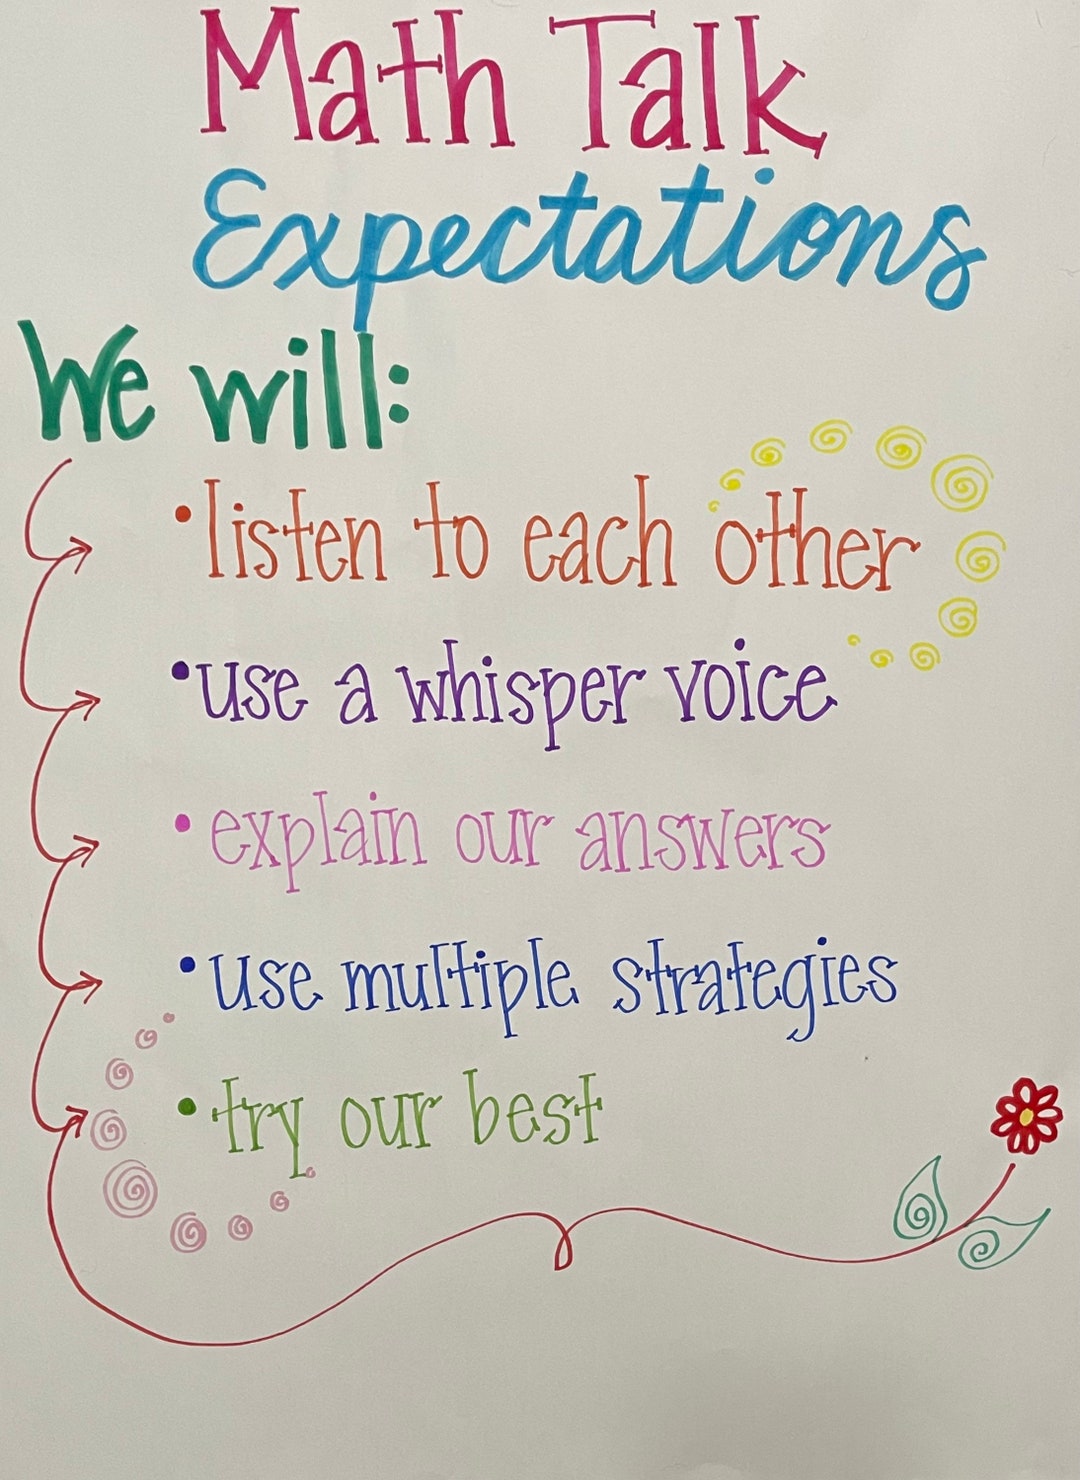 Math Talk
Expectations
We will:
• listen to each other
• use a whisper voice
• explain our answers
• use multiple strategies
• try our best